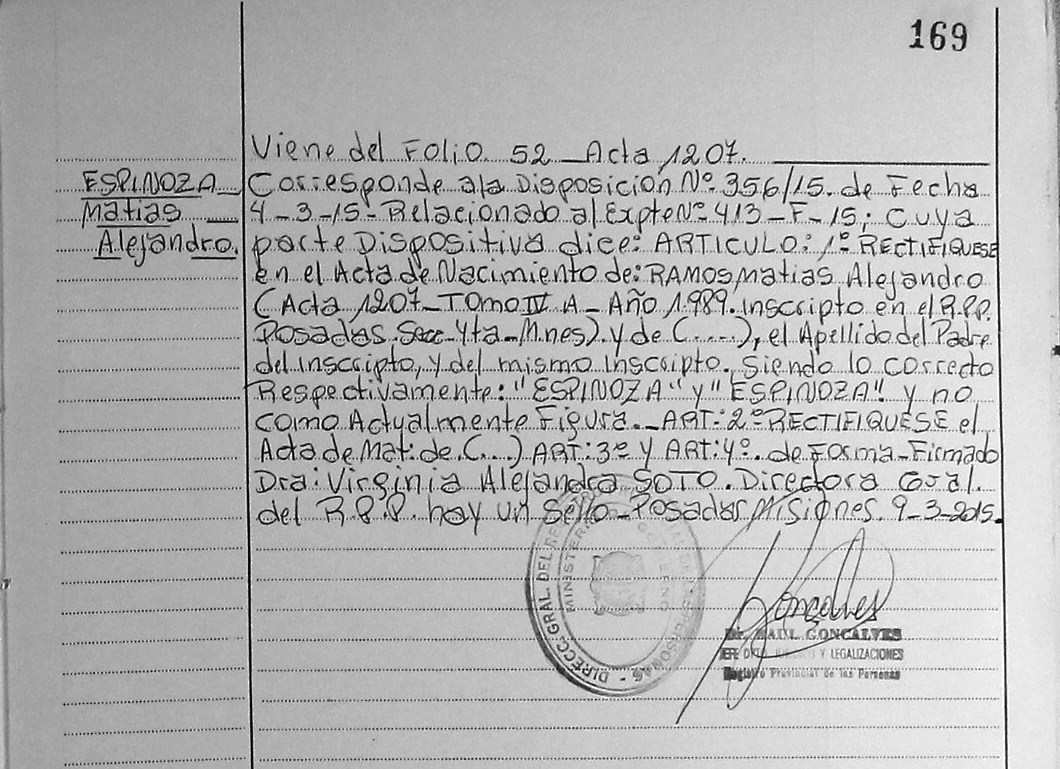 169
Viene del Folio 52 Acta 1207.
ESPINOZA
Matias
Alejandro.
Corresponde a la Disposicion Nº 356/15. de Fecha
4-3-15- Relacionado al Expte Nº 413-F-15; cuya
parte Dispositiva dice: ARTICULO: 1º RECTIFIQUESE
en el Acta de Nacimiento de: RAMOS Matias Alejandro
(Acta 1207-TOMO IV A-Año 1.989. inscripto en el R.P.P.
Posadas. Secc-4ta-Mnes) y de (.....), el Apellido del Padre
del inscripto, y del mismo inscripto. Siendo lo correcto
Respectivamente: "ESPINOZA" y "ESPINOZA". y no
como Actualmente Figura. ART: 2º RECTIFIQUESE el
Acta de Mat: de (...) ART: 3º y ART: 4º. de Forma-Firmado
Dra: Virginia Alejandra SOTO. Directora Gral.
del R.P.P. hay un Sello-Posadas Misiones. 9-3-2015.
DIRECC. GRAL. DEL PERSONAS
MINISTER GOBIERNO
Goncalves
Dr. RAUL GONCALVES
JEFE DPTO. Y LEGALIZACIONES
Registro Provincial de las Personas